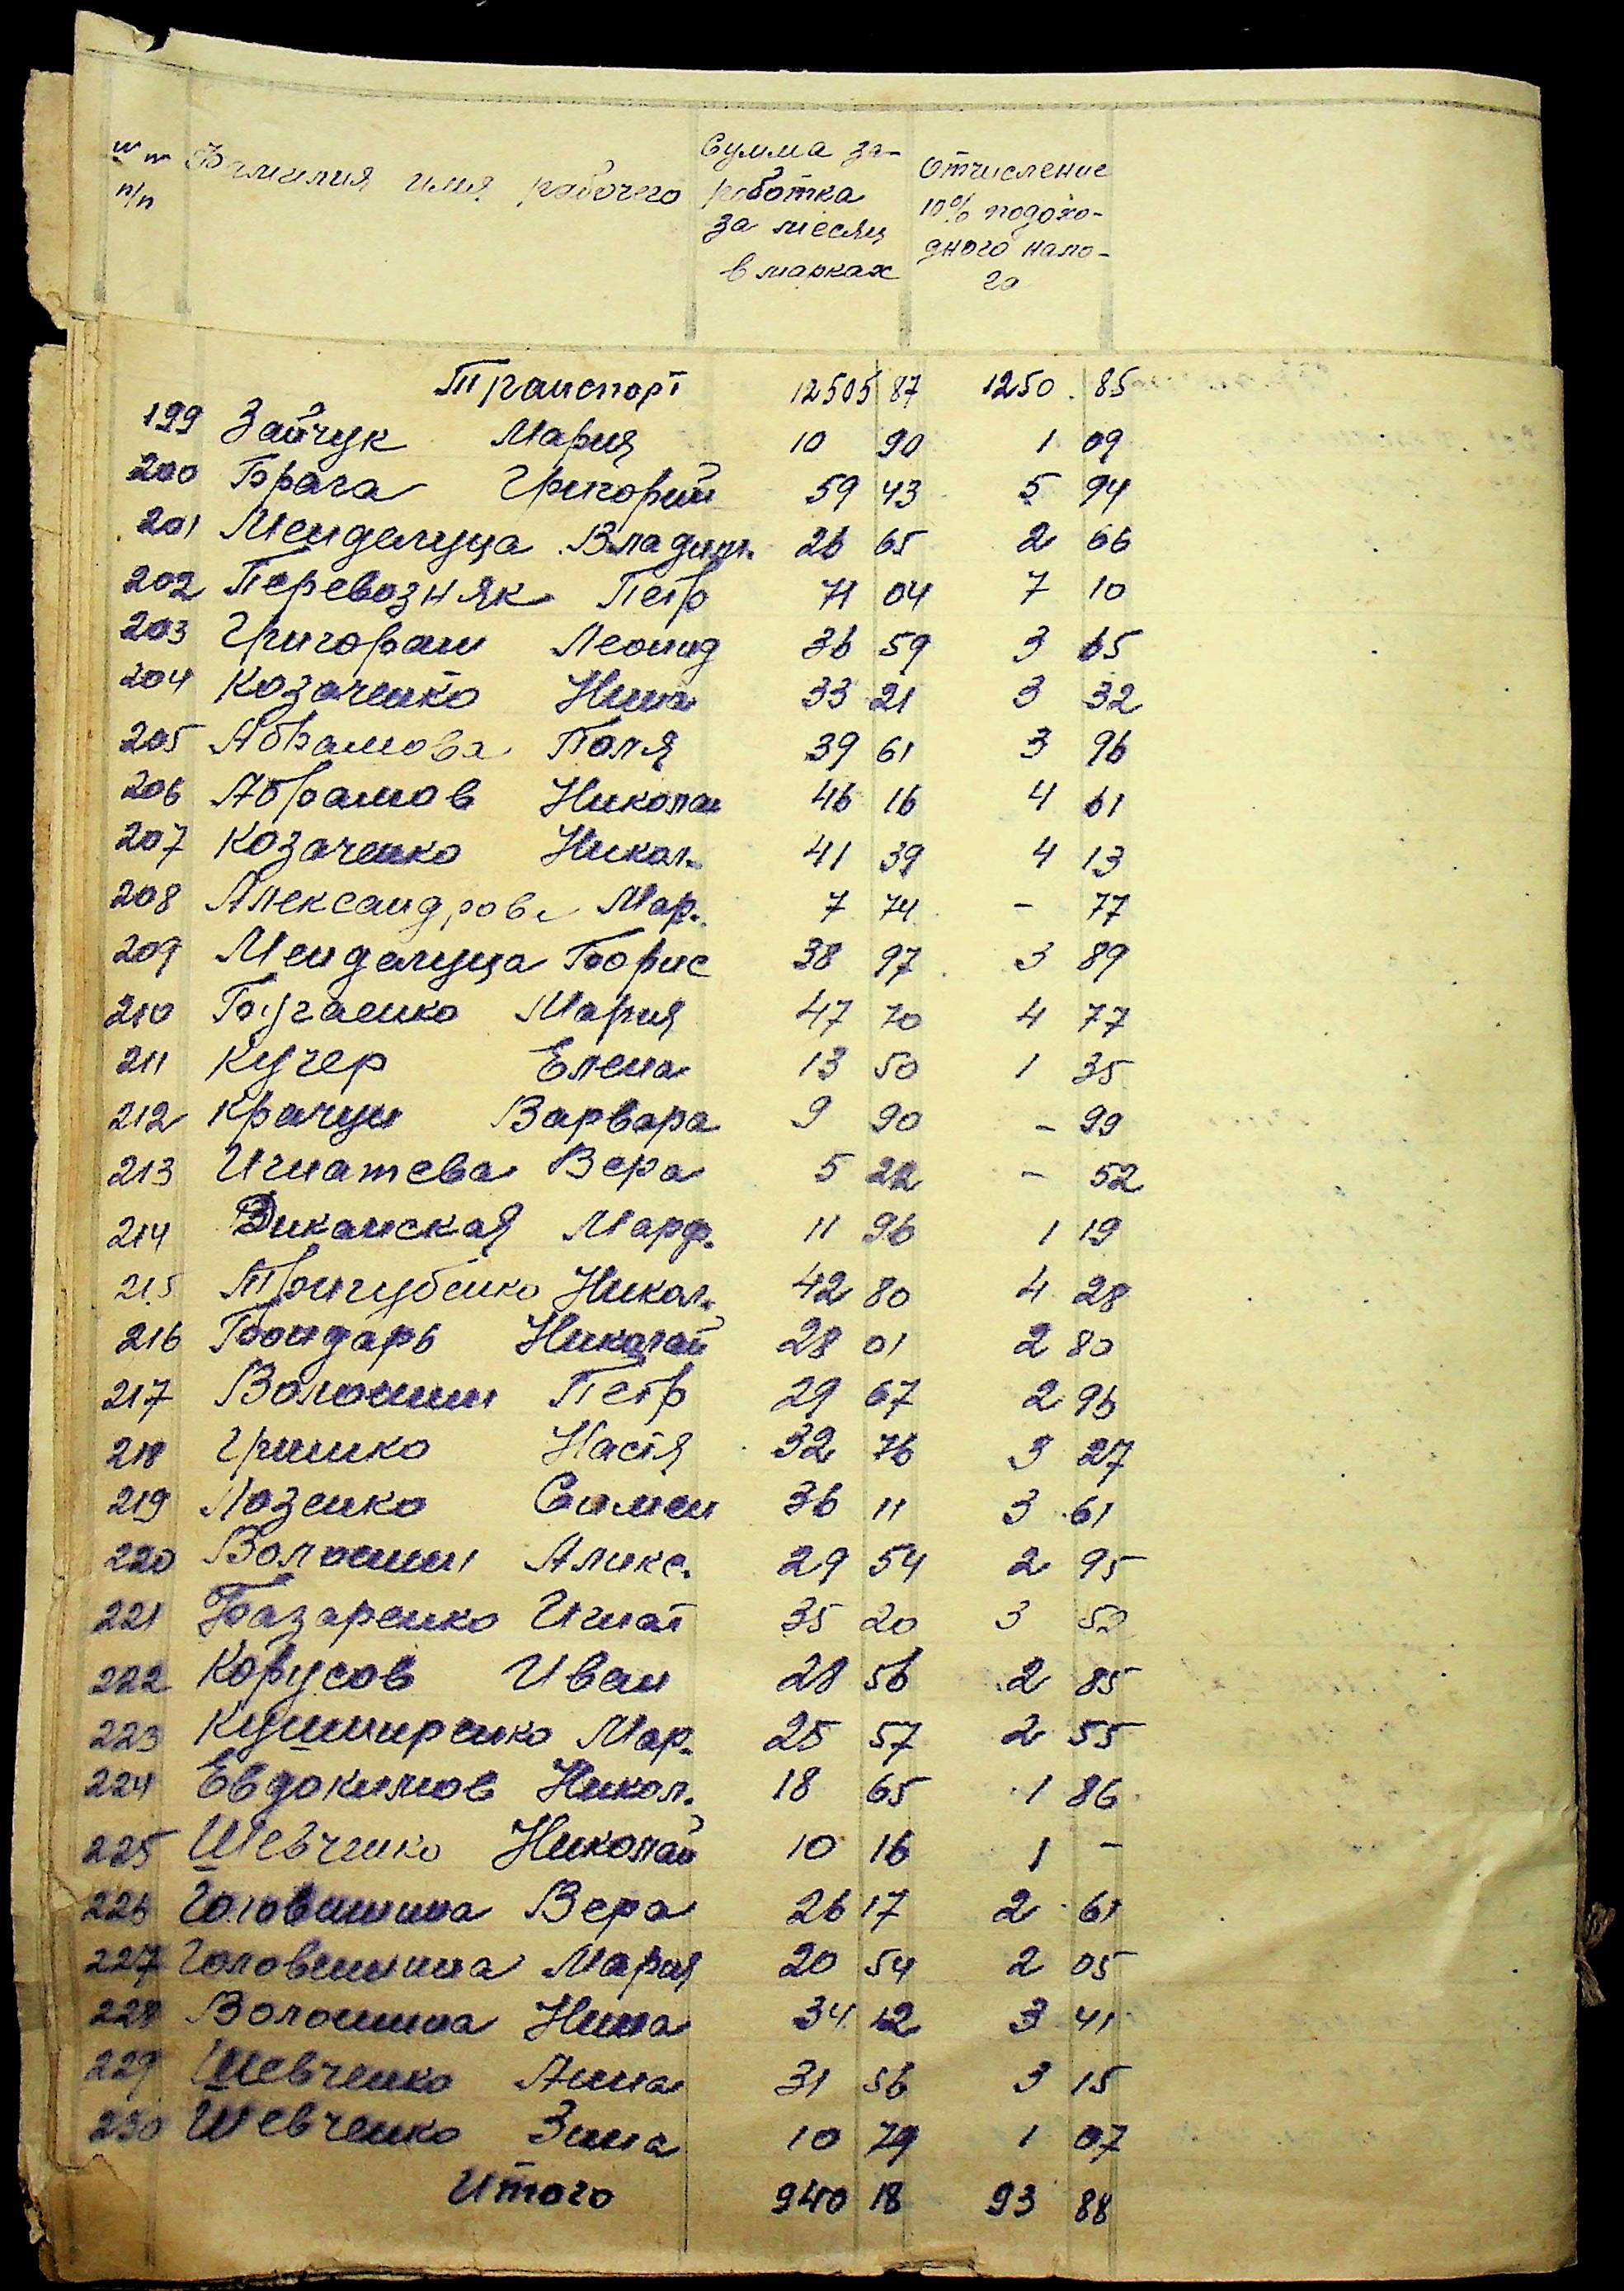 №№ Фамилия имя рабочего Сумма за- Отчисление
п/п работка 10% подохо-
за месяц дного нало-
в марках га
Транспорт 12505 87 1250. 85
199 Зайчук Мария 10 90 1 09
200 Брага Григорий 59 43 5 94
201 Менделуца Владим. 26 65 2 66
202 Перевозняк Петр 71 04 7 10
203 Григораш Леонид 36 59 3 65
204 Козаченко Нина 33 21 3 32
205 Абрамова Поля 39 61 3 96
206 Абрамов Николаи 46 16 4 61
207 Козаченко Никол. 41 39 4 13
208 Александрова Мар. 7 74 – 77
209 Менделуца Борис 38 97 3 89
210 Бугаенко Мария 47 70 4 77
211 Кучер Елена 13 50 1 35
212 Крачун Варвара 9 90 – 99
213 Игнатева Вера 5 22 – 52
214 Диканская Марф. 11 96 1 19
215 Тригубенко Никол. 42 80 4 28
216 Бондарь Николай 28 01 2 80
217 Волошин Петр 29 67 2 96
218 Гришко Настя 32 76 3 27
219 Лозенко Самен 36 11 3 61
220 Волошин Аликс. 29 54 2 95
221 Базаренко Игнат 35 20 3 52
222 Корусов Иван 28 56 2 85
223 Кушниренко Мар. 25 57 2 55
224 Евдокимов Никол. 18 65 1 86
225 Шевченко Николай 10 16 1 –
226 Головашина Вера 26 17 2 61
227 Мария 20 54 2 05
228 Волошина Нина 34 12 3 41
229 Шевченко Анна 31 56 3 15
230 Шевченко Зина 10 79 1 07
Итого 940 18 93 88